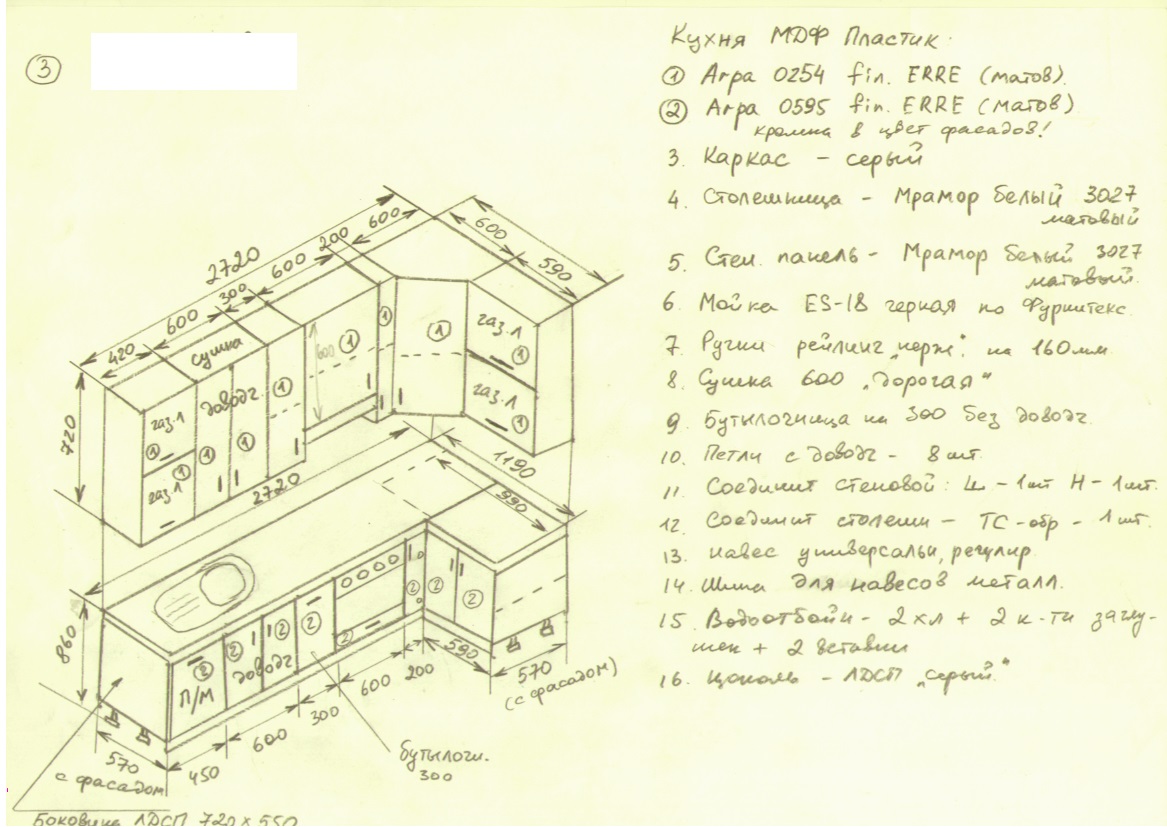 3
Кухня МДФ Пластик
1 Arpa 0254 fin. ERRE (матов).
2 Arpa 0595 fin. ERRE (матов)
кромка в цвет фасадов!
3. Каркас - серый
4. Столешница - Мрамор белый 3027
матовый
5. Стен. панель - Мрамор белый 3027
матовый.
6. Мойка ES-18 черная по Фурнитекс.
7. Ручки рейлинг „нерж". на 160 мм
8. Сушка 600 „дорогая"
9. Бутылочница на 300 без доводч.
10. Петли с доводч - 8 шт.
11. Соединит стеновой: Щ - 1шт Н - 1шт.
12. Соединит столешн - ТС-обр - 1 шт.
13. навес универсальн, регулир.
14. Шина для навесов металл.
15. Водоотбойн - 2 хл + 2 к-ти заглу-
шек + 2 вставки
16. Цоколь - ЛДСП „серый"
2720
420
600
300
600
200
600
600
590
720
сушка
газ.л
1
газ.л
1
доводч.
1
1
1
600
1
1
1
газ.л
1
газ.л
1
2720
1190
990
860
П/М
2
2
доводч
2
2
2
2
2
2
570
с фасадом
450
600
300
600
200
590
570
(с фасадом)
бутылочн.
300
Боковина ЛДСП 720 x 550